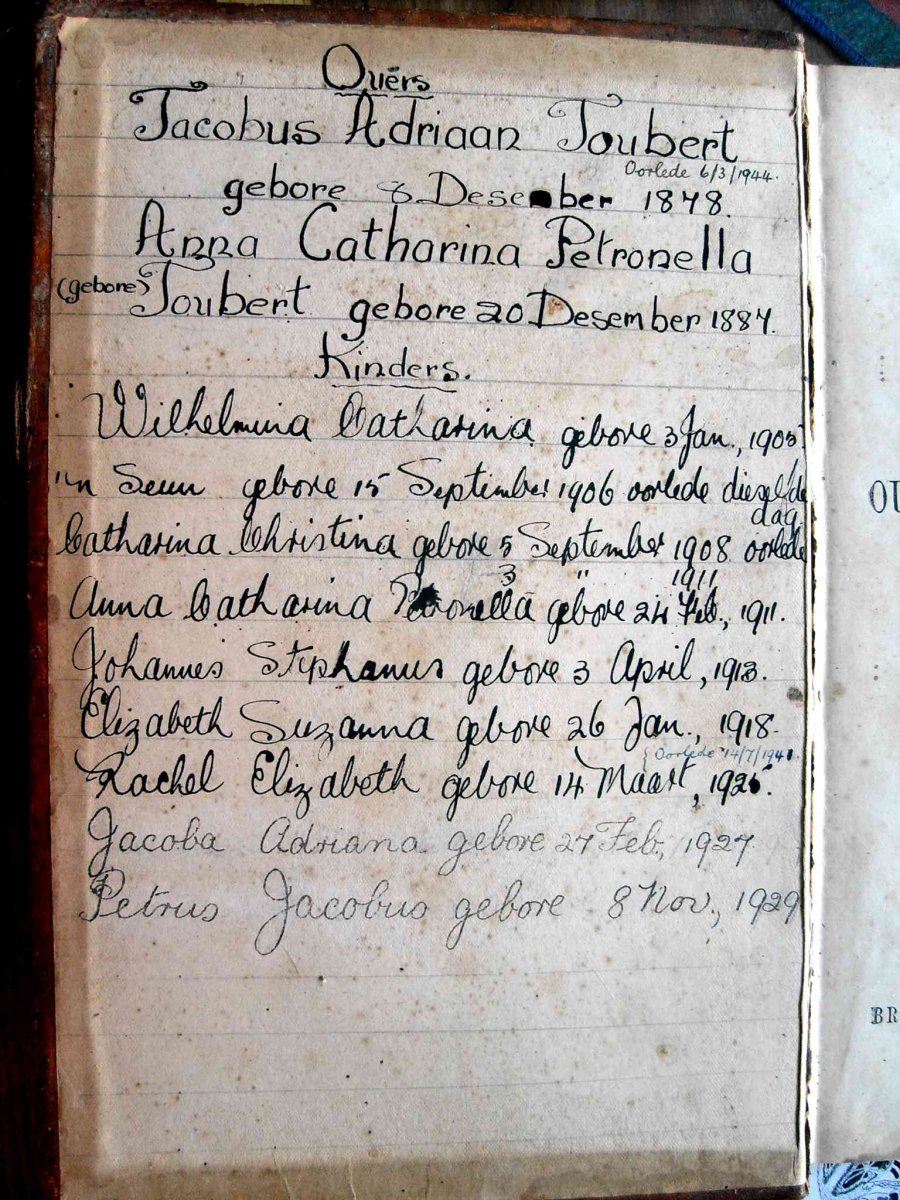 Ouërs
Jacobus Adriaan Joubert
Oorlede 6/3/1944.
gebore 8 Desember 1878.
Anna Catharina Petronella
(gebore) Joubert gebore 20 Desember 1887.
Kinders.
Wilhelmina Catharina gebore 3 Jan., 1905
'n Seun gebore 15 September 1906 oorlede dieselfde
dag
Catharina Christina gebore 5 September 1908 oorlede
3 " 1911
Anna Catharina Petronella gebore 24 Feb., 1911.
Johannes Stephanus gebore 3 April, 1913.
Elizabeth Suzanna gebore 26 Jan., 1918.
Oorlede 14/7/1941
Rachel Elizabeth gebore 14 Maart, 1925.
Jacoba Adriana gebore 27 Feb., 1927
Petrus Jacobus gebore 8 Nov., 1929
OU
BR